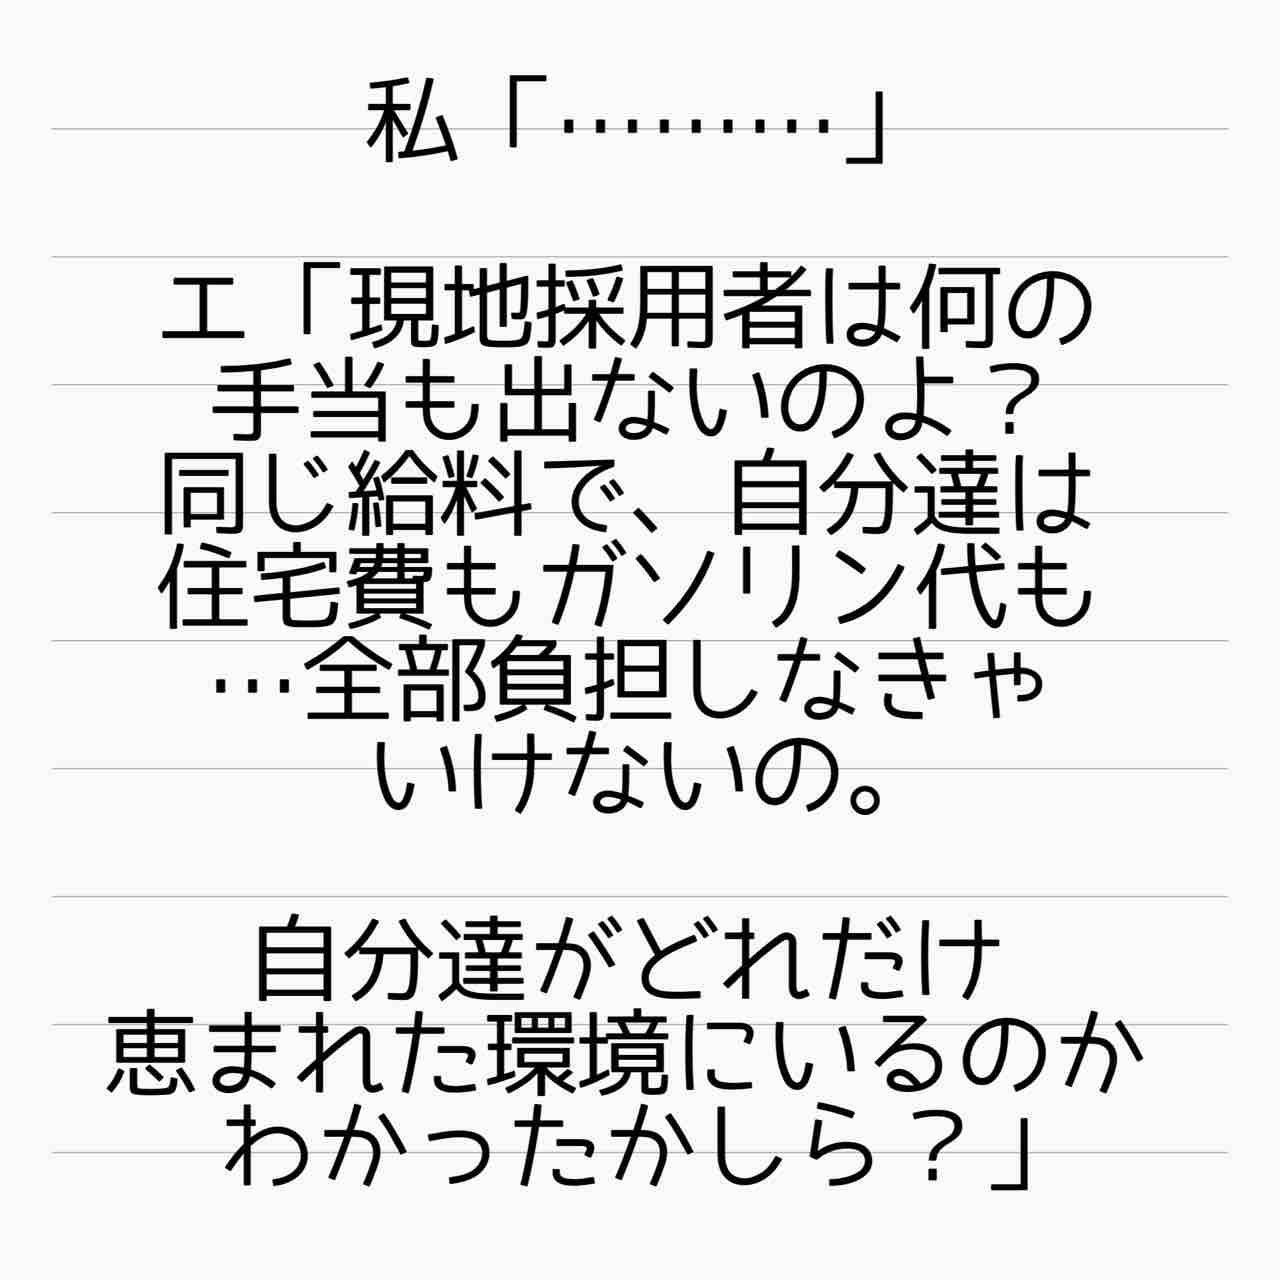 私「………」
エ「現地採用者は何の
手当も出ないのよ？
同じ給料で、自分達は
住宅費もガソリン代も
…全部負担しなきゃ
いけないの。
自分達がどれだけ
恵まれた環境にいるのか
わかったかしら？」